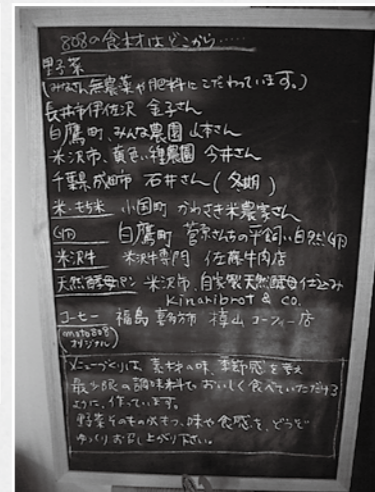 808の食材はどこから……
野菜
(みなさん無農薬や肥料にこだわっています。)
長井市伊佐沢 金子さん
白鷹町、みんな農園 山本さん
米沢市、黄色い種農園 今井さん
千葉県成田市 石井さん(冬期)
米・もち米 小国町 かわさき米農家さん
卵 白鷹町 菅原さんちの平飼い自然卵
米沢牛 米沢牛専門 佐藤牛肉店
天然酵母パン 米沢市、自家製天然酵母仕込み
Kinaribrot & co.
コーヒー 福島 喜多方市 樟山コーフィー店
(moto808オリジナル)
メニューづくりは、素材の味、季節感を考え
最少限の調味料で、おいしく食べていただける
ように、作っています。
野菜そのものがもつ、味や食感を、どうぞ
ゆっくりお召し上がり下さい。